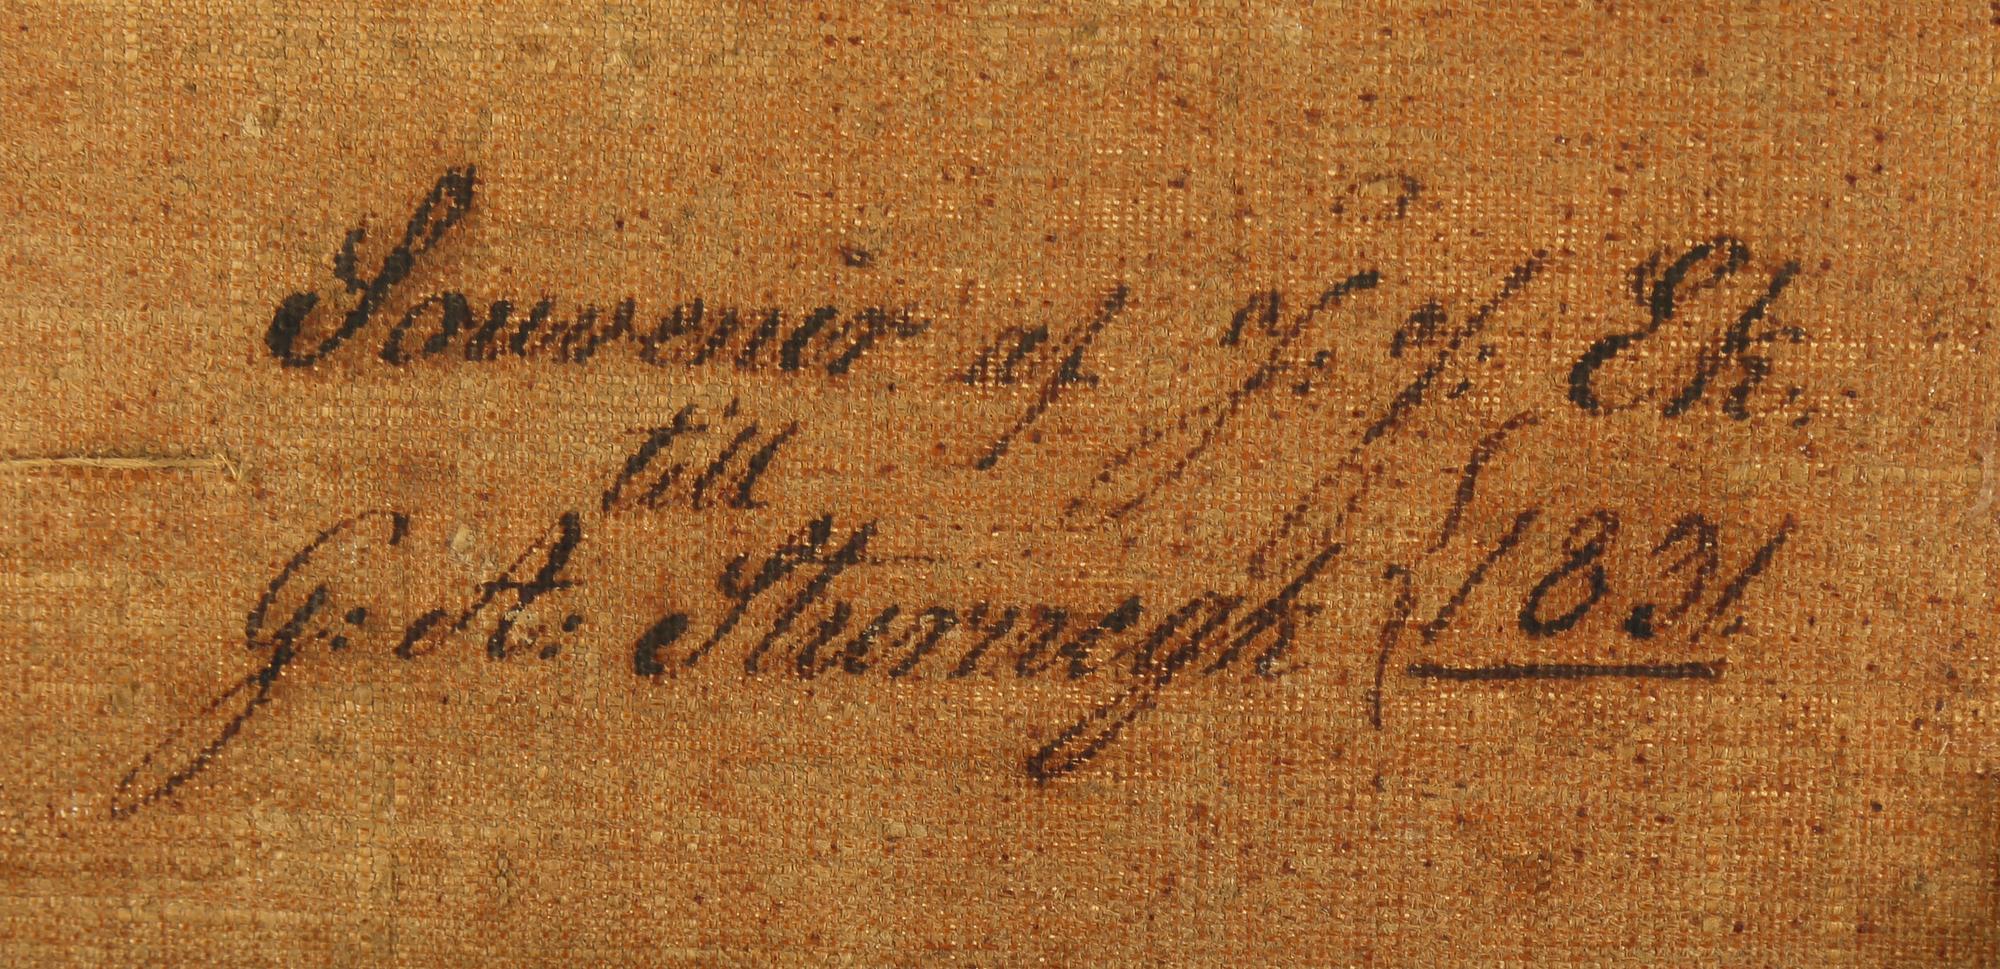 Souvenir af J. J. Ek.
till
G: A: Sturmegk 1831